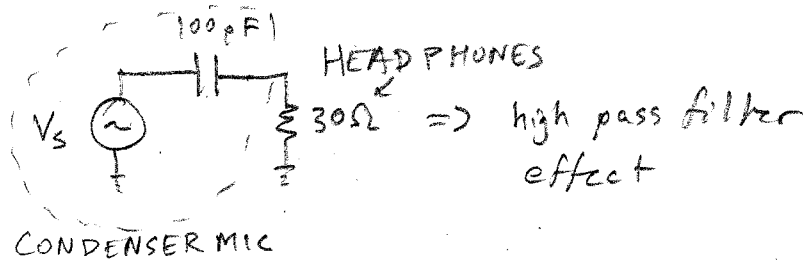 100pF
HEADPHONES
Vs
30Ω => high pass filter
effect
CONDENSER MIC